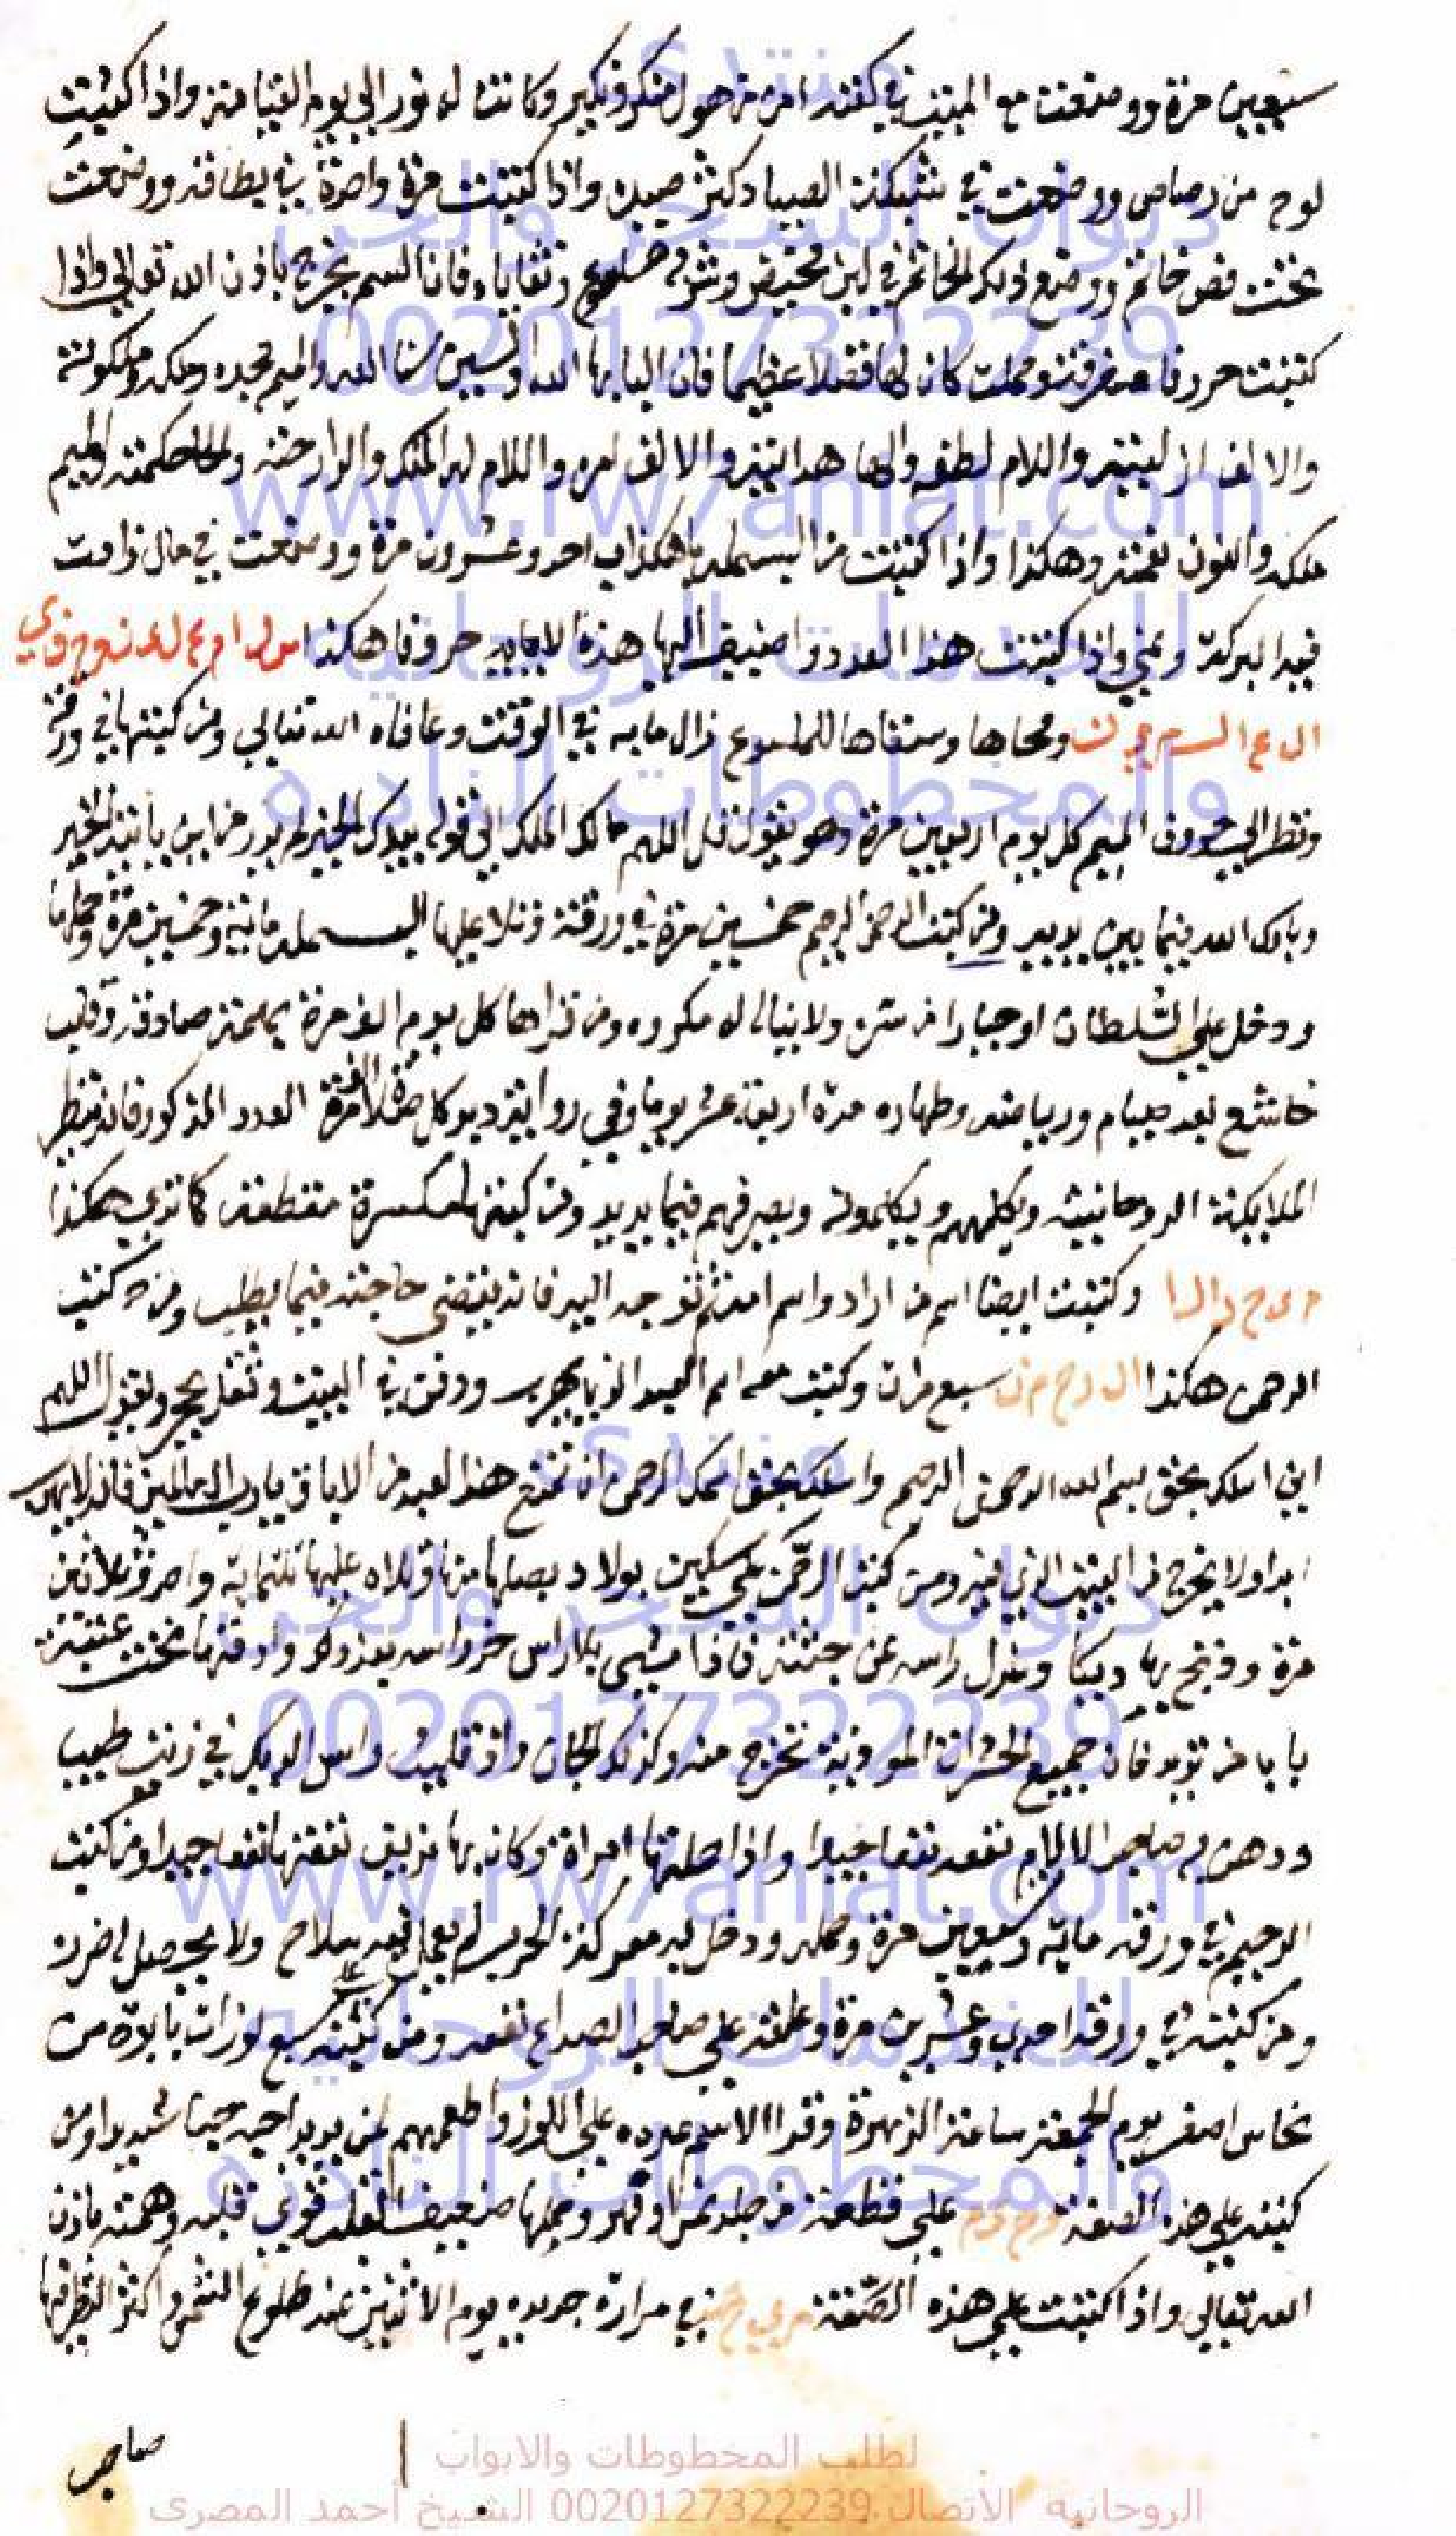 سبعين مرة ووضعت مع الميت في كفنه امن من هول منكر ونكير وكانت له نور الي يوم القيامة واذا كتبت
لوح من رصاص ووضعت في شبكة الصياد كثر صيده واذا كتبت مرة واحدة في بطاقة ووضعت
تحت فص خاتم ووضع ذلك الخاتم في لبن مخيض وشربه وتقاياه فان السم يخرج باذن الله تعالي واذا
كتبت حروفا متفرقة وحملت كان لها فضلا عظيما فان البا بها الله والسين سنا الله والميم مجده وملكه وملكوته
والالف ازليته واللام لطفه والها هدايته والالف امره واللام له الملك والرا رحمته والحا حكمته والميم
ملكه والنون نعمته وهكذا واذا كتبت من البسملة هكذا احد وعشرون مرة ووضعت في مال زادت
فيه البركة ونمي واذا كتبت هذا العدد واضيف اليها هذه الاية حروفا هكذا س ل ا م ع ل ي ن و ح ف ي
ال ع ا ل م ي ن ومحاها وسقاها للملسوع زال ما به في الوقت وعافاه الله تعالي ومن كتبها في ورقة
ونظر الي حروف الميم كل يوم اربعين مرة وهو يقول قل اللهم مالك الملك الي قوله بيدك الخير لم يدر من اين ياتيه الخير
وبارك الله فيما بين يديه ومن كتب الرحمن الرحيم خمسين مرة في ورقة وتلا عليها البسملة ماية وخمسين مرة وحملها
ودخل علي السلطان او جبار امن شره ولا ينال له مكروه ومن قراها كل يوم الف مرة بهمة صادقة وقلب
خاشع بعد صيام ورياضة وطهارة مدة اربعة عشر يوما وفي رواية دبر كل صلاة العدد المذكور فانه ينظر
الملايكة الروحانية ويكلمهم ويكلمونه ويصرفهم فيما يريد ومن كتبها مكسرة مقطعة كما تري هكذا
وكتبت ايضا اسم من اراد واسم امه ثم توجه اليه فانه يقضي حاجته فيما يطلب ومن كتب
الرحمن هكذا ال ر ح م ن سبع مرات وكتب معه اسم العبد الذي يهرب ودفن في البيت وثقل بحجر ويقول اللهم
اني اسلك بحق بسم الله الرحمن الرحيم واسلك بحق اسمك الرحمن ان تمنع هذا العبد من الاباق يا رب العالمين فانه لا يهرب
ابدا ولا يخرج من البيت الذي فيه ومن كتب الرحمن علي سكين بولاد بصلها منها وتلاه عليها ثلثماية واحد وثلاثين
مرة وذبح بها ديكا وعزل راسه عن جثته فاذا مشي بلا راس خذ راسه بعد ذلك وادفنها تحت عتبة
باب من تريد فان جميع الحشرات الموذية تخرج منه وكذلك الجان واذا قليت راس الديك في زيت طيب
ودهن به صاحب الالام نفعه نفعا جيدا واذا حملتها امراة وكان بها نزيف نفعتها نفعا جيدا ومن كتب
الرحيم في ورقة ماية وتسعين مرة وحمله ودخل به معركة الحرب لم يعمل فيه سلاح ولا يحصل له ضرر
ومن كتبه في ورقة احدي وعشرين مرة وعلقه علي صاحب الصداع نفعه ومن كتبه علي سبع لوزات بابرة من
نحاس اصفر يوم الجمعة ساعة الزهرة وقرا الاسم عدده علي اللوز واطعمهم لمن يريد احبه حبا شديدا ومن
كتبه علي هذه الصفة علي قطعة من جلد نمر او فهد وحملها ضعيف القلب قوي قلبه وهمته باذن
الله تعالي واذا كتبت علي هذه الصفة في مراة جديدة يوم الاثنين عند طلوع الشمس واكثر النظر فيها
صاحب
منتدى
ديوان السحر والجن
0020127322239
www.rw7aniat.com
للخدمات الروحانيه
والمخطوطات النادره
منتدى
ديوان السحر والجن
0020127322239
www.rw7aniat.com
للخدمات الروحانيه
والمخطوطات النادره
لطلب المخطوطات والابواب
الروحانيه الاتصال 0020127322239 الشيخ أحمد المصرى